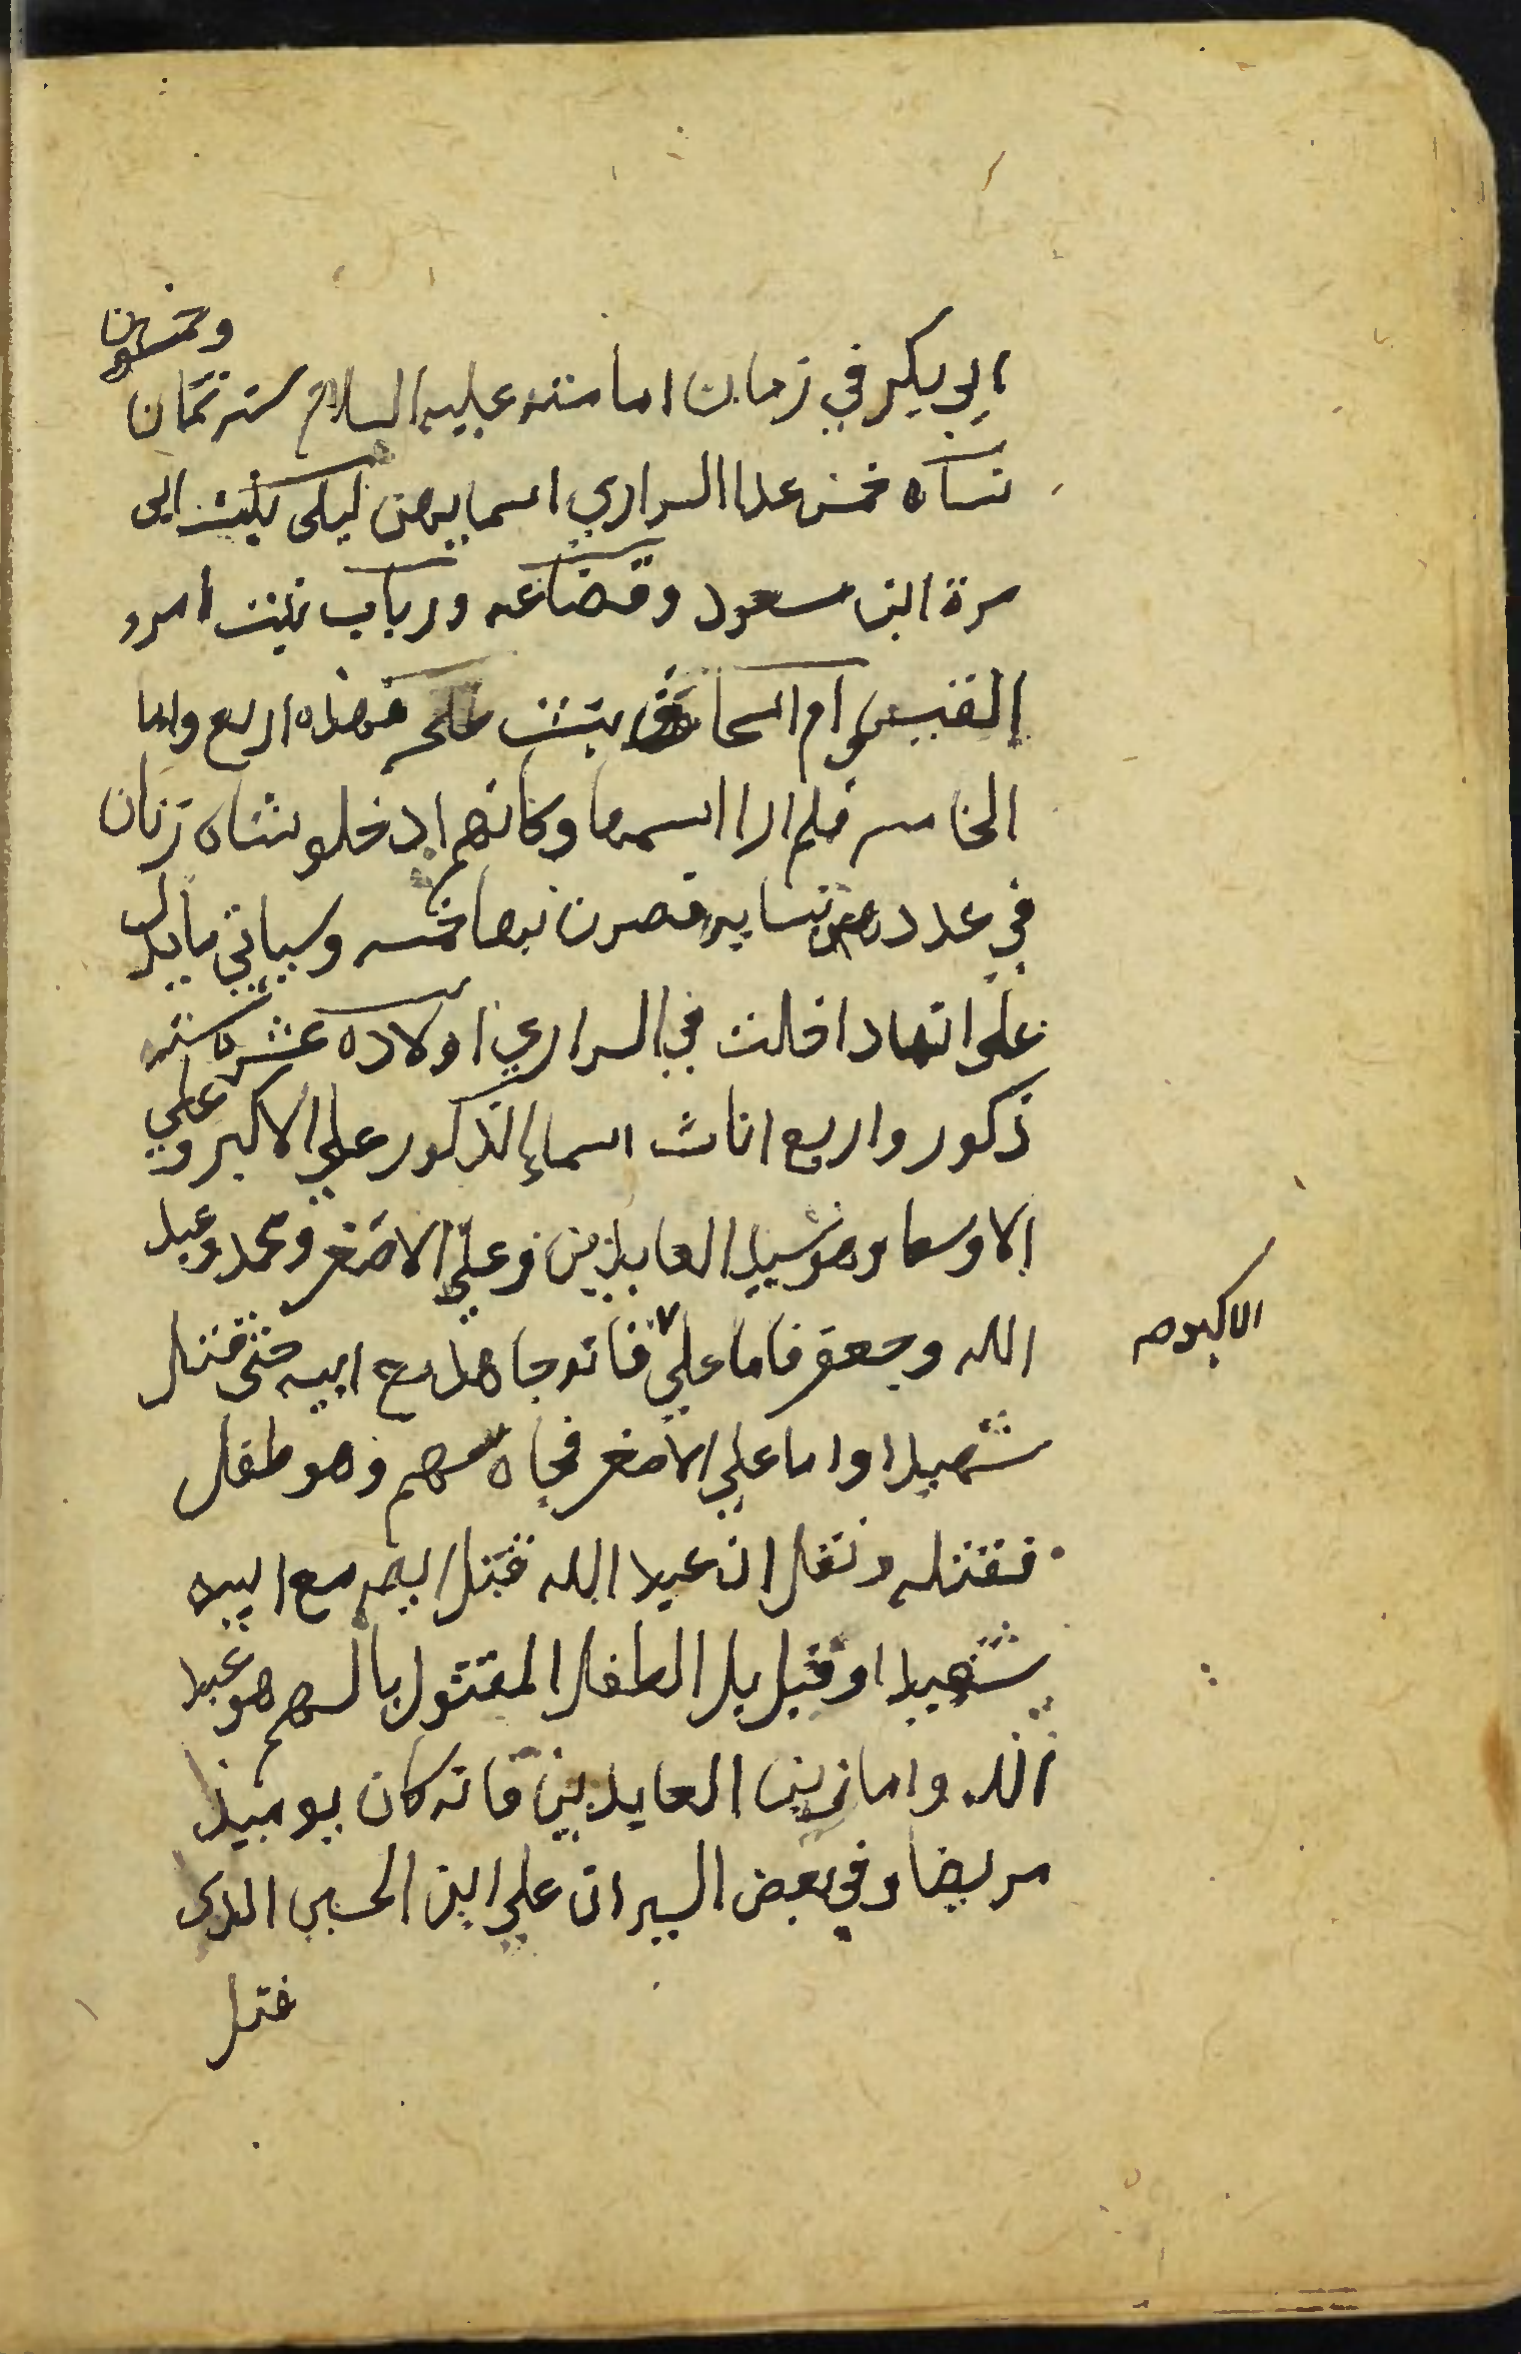 ابي بكر في زمان امامته عليه السلام سنة ثمان
وخمسون
نسآه خمس عدا السراري اسمايهن ليلى بنت ابى
مرة ابن مسعود وقضاعه ورباب بنت امرء
القيس وام اسحاق بنت طلحه فهذه اربع واما
الخامسه فلم ارا اسمها وكانهم ادخلو شاه زنان
في عدد نسايه فصرن بها خمسه وسياتي ما يدل
على انها داخلت في السراري اولاده عشره سته
ذكور واربع اناث اسماء الذكور علي الاكبر وعلي
الاوسط وهو سيد العابدين وعلي الاصغر ومحمد وعبد
الله وجعفر فاما علي فانه جاهد مع ابيه حتى قتل
الاكبر صح
شهيدا واما علي الاصغر فجاه سهم وهو طفل
فقتله ونقل ان عبد الله قتل ايضا مع ابيه
شهيدا وقيل بل الطفل المقتول بالسهم هو عبد
الله واما زين العابدين فانه كان يوميذ
مريضا وفي بعض السير ان علي ابن الحسين الذي
قتل